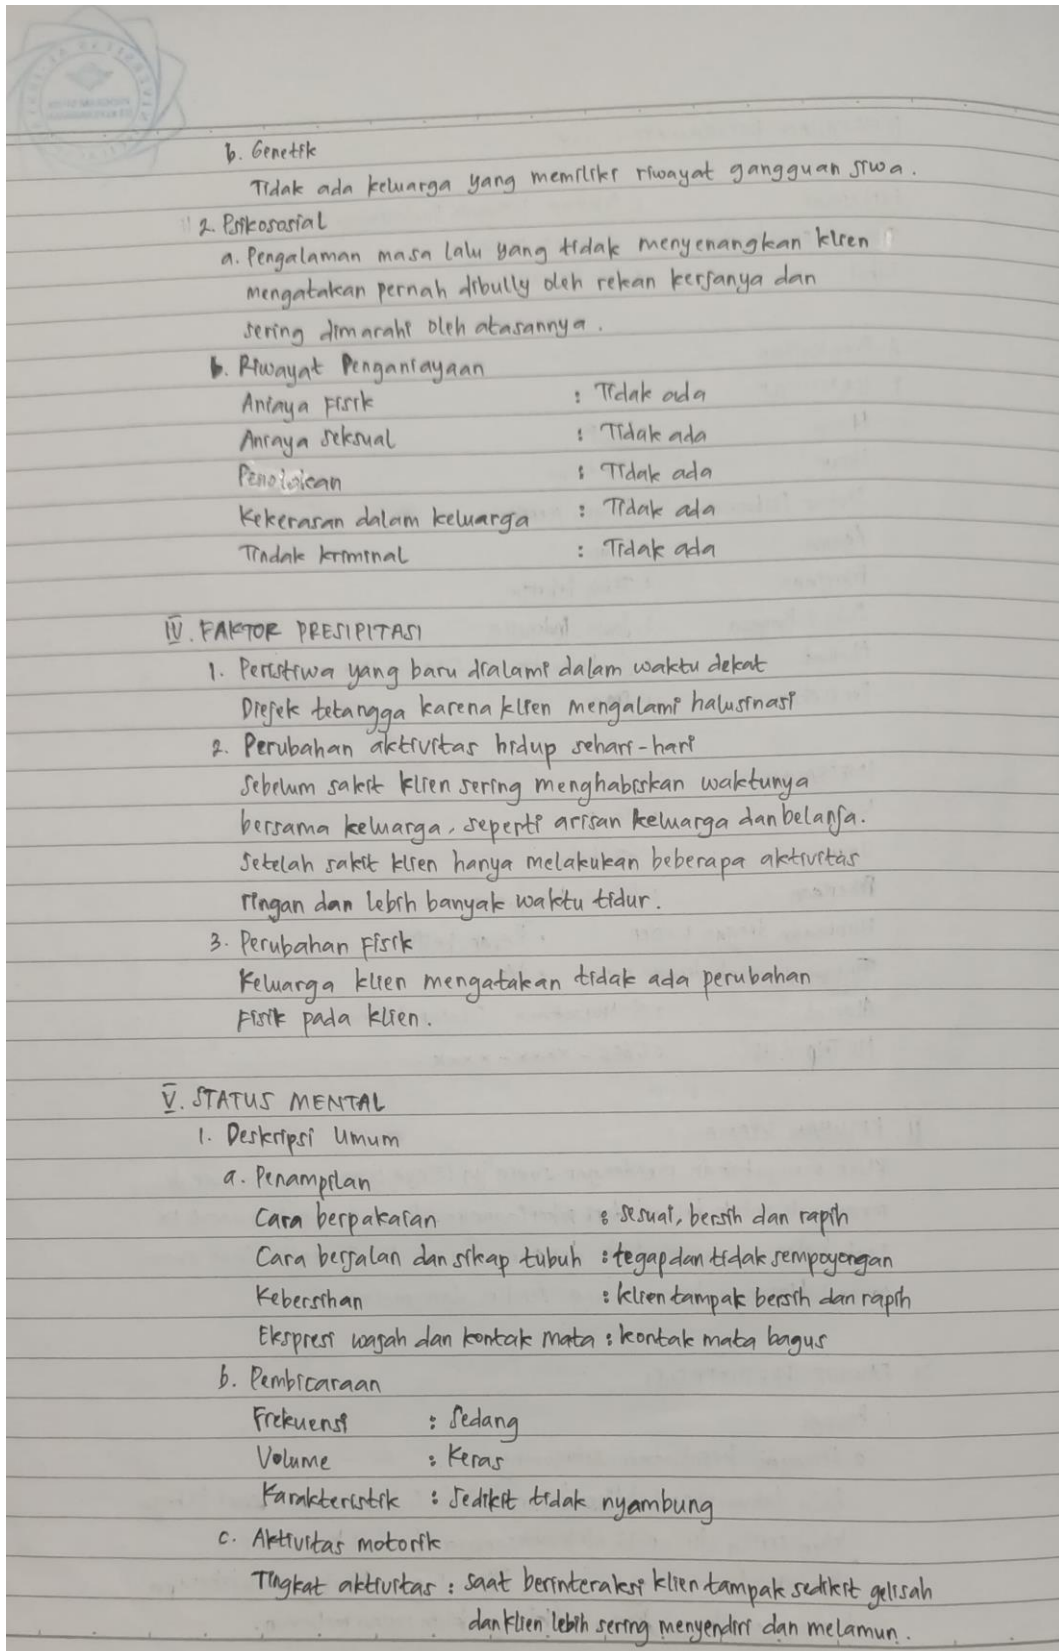 b. Genetik
Tidak ada keluarga yang memiliki riwayat gangguan jiwa.
2. Psikososial
a. Pengalaman masa lalu yang tidak menyenangkan klien
mengatakan pernah dibully oleh rekan kerjanya dan
sering dimarahi oleh atasannya.
b. Riwayat Penganiayaan
Aniaya Fisik : Tidak ada
Aniaya seksual : Tidak ada
Penolakan : Tidak ada
Kekerasan dalam keluarga : Tidak ada
Tindak kriminal : Tidak ada
IV. FAKTOR PRESIPITASI
1. Peristiwa yang baru dialami dalam waktu dekat
Diejek tetangga karena klien mengalami halusinasi
2. Perubahan aktivitas hidup sehari-hari
Sebelum sakit klien sering menghabiskan waktunya
bersama keluarga, seperti arisan keluarga dan belanja.
Setelah sakit klien hanya melakukan beberapa aktivitas
ringan dan lebih banyak waktu tidur.
3. Perubahan Fisik
Keluarga klien mengatakan tidak ada perubahan
Fisik pada klien.
V. STATUS MENTAL
1. Deskripsi Umum
a. Penampilan
Cara berpakaian : Sesuai, bersih dan rapih
Cara berjalan dan sikap tubuh : tegap dan tidak sempoyongan
Kebersihan : klien tampak bersih dan rapih
Ekspresi wajah dan kontak mata : kontak mata bagus
b. Pembicaraan
Frekuensi : Sedang
Volume : Keras
Karakteristik : Sedikit tidak nyambung
c. Aktivitas motorik
Tingkat aktivitas : saat berinteraksi klien tampak sedikit gelisah
dan klien lebih sering menyendiri dan melamun.